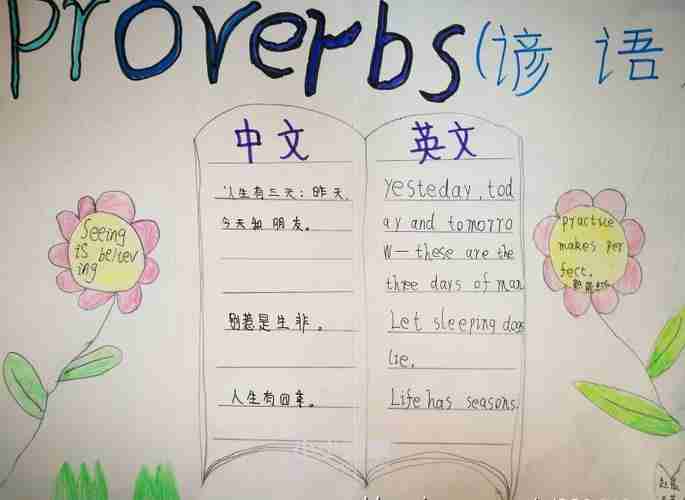 Proverbs(谚语
中文
人生有三天：昨天、
今天和朋友。
别惹是生非。
人生有四季。
英文
Yesteday, tod
ay and tomorro
w— these are the
three days of man
Let sleeping dogs
lie.
Life has seasons.
Seeing
is believ
ing
practice
makes per
fect.
熟能生巧